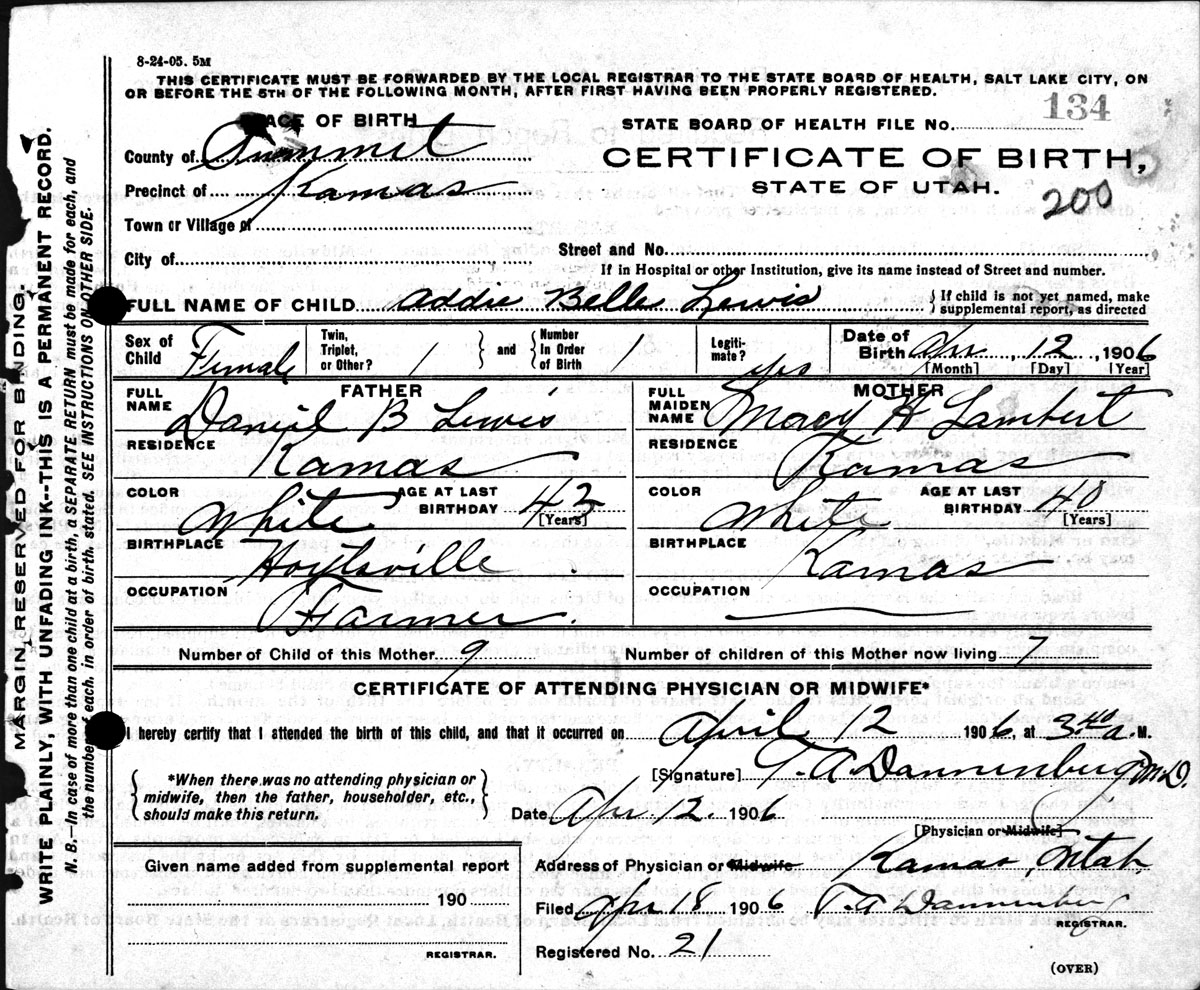 8-24-05. 5M
THIS CERTIFICATE MUST BE FORWARDED BY THE LOCAL REGISTRAR TO THE STATE BOARD OF HEALTH, SALT LAKE CITY, ON
OR BEFORE THE 5TH OF THE FOLLOWING MONTH, AFTER FIRST HAVING BEEN PROPERLY REGISTERED.
ACE OF BIRTH
STATE BOARD OF HEALTH FILE No. 134
County of Summit
CERTIFICATE OF BIRTH,
Precinct of Kamas
STATE OF UTAH.
200
Town or Village of
Street and No.
City of
If in Hospital or other Institution, give its name instead of Street and number.
FULL NAME OF CHILD Addie Belle Lewis { If child is not yet named, make
supplemental report, as directed
Sex of Child Female Twin, Triplet, or Other? 1 } and { Number In Order of Birth 1 Legiti-mate? yes Date of Birth Apr 12, 1906
[Month] [Day] [Year]
FATHER
FULL NAME Daniel B Lewis
MOTHER
FULL MAIDEN NAME H Lambert
RESIDENCE Kamas
RESIDENCE Kamas
COLOR White AGE AT LAST BIRTHDAY 42 [Years]
COLOR White AGE AT LAST BIRTHDAY 40 [Years]
BIRTHPLACE Hoytsville
BIRTHPLACE Kamas
OCCUPATION Farmer.
OCCUPATION
Number of Child of this Mother 9
Number of children of this Mother now living 7
CERTIFICATE OF ATTENDING PHYSICIAN OR MIDWIFE*
I hereby certify that I attended the birth of this child, and that it occurred on April 12 1906, at 3.40 a. M.
{ *When there was no attending physician or
midwife, then the father, householder, etc.,
should make this return. }
[Signature] T. A. Dannenberg M.D.
Date Apr 12. 1906
[Physician or Midwife]
Given name added from supplemental report
190
REGISTRAR.
Address of Physician or Midwife Kamas, Utah
Filed Apr 18 1906 T. A. Dannenberg
REGISTRAR.
Registered No. 21
(OVER)
MARGIN RESERVED FOR BINDING.
WRITE PLAINLY, WITH UNFADING INK--THIS IS A PERMANENT RECORD.
N. B.—In case of more than one child at a birth, a SEPARATE RETURN must be made for each, and
the number of each, in order of birth, stated. SEE INSTRUCTIONS ON OTHER SIDE.